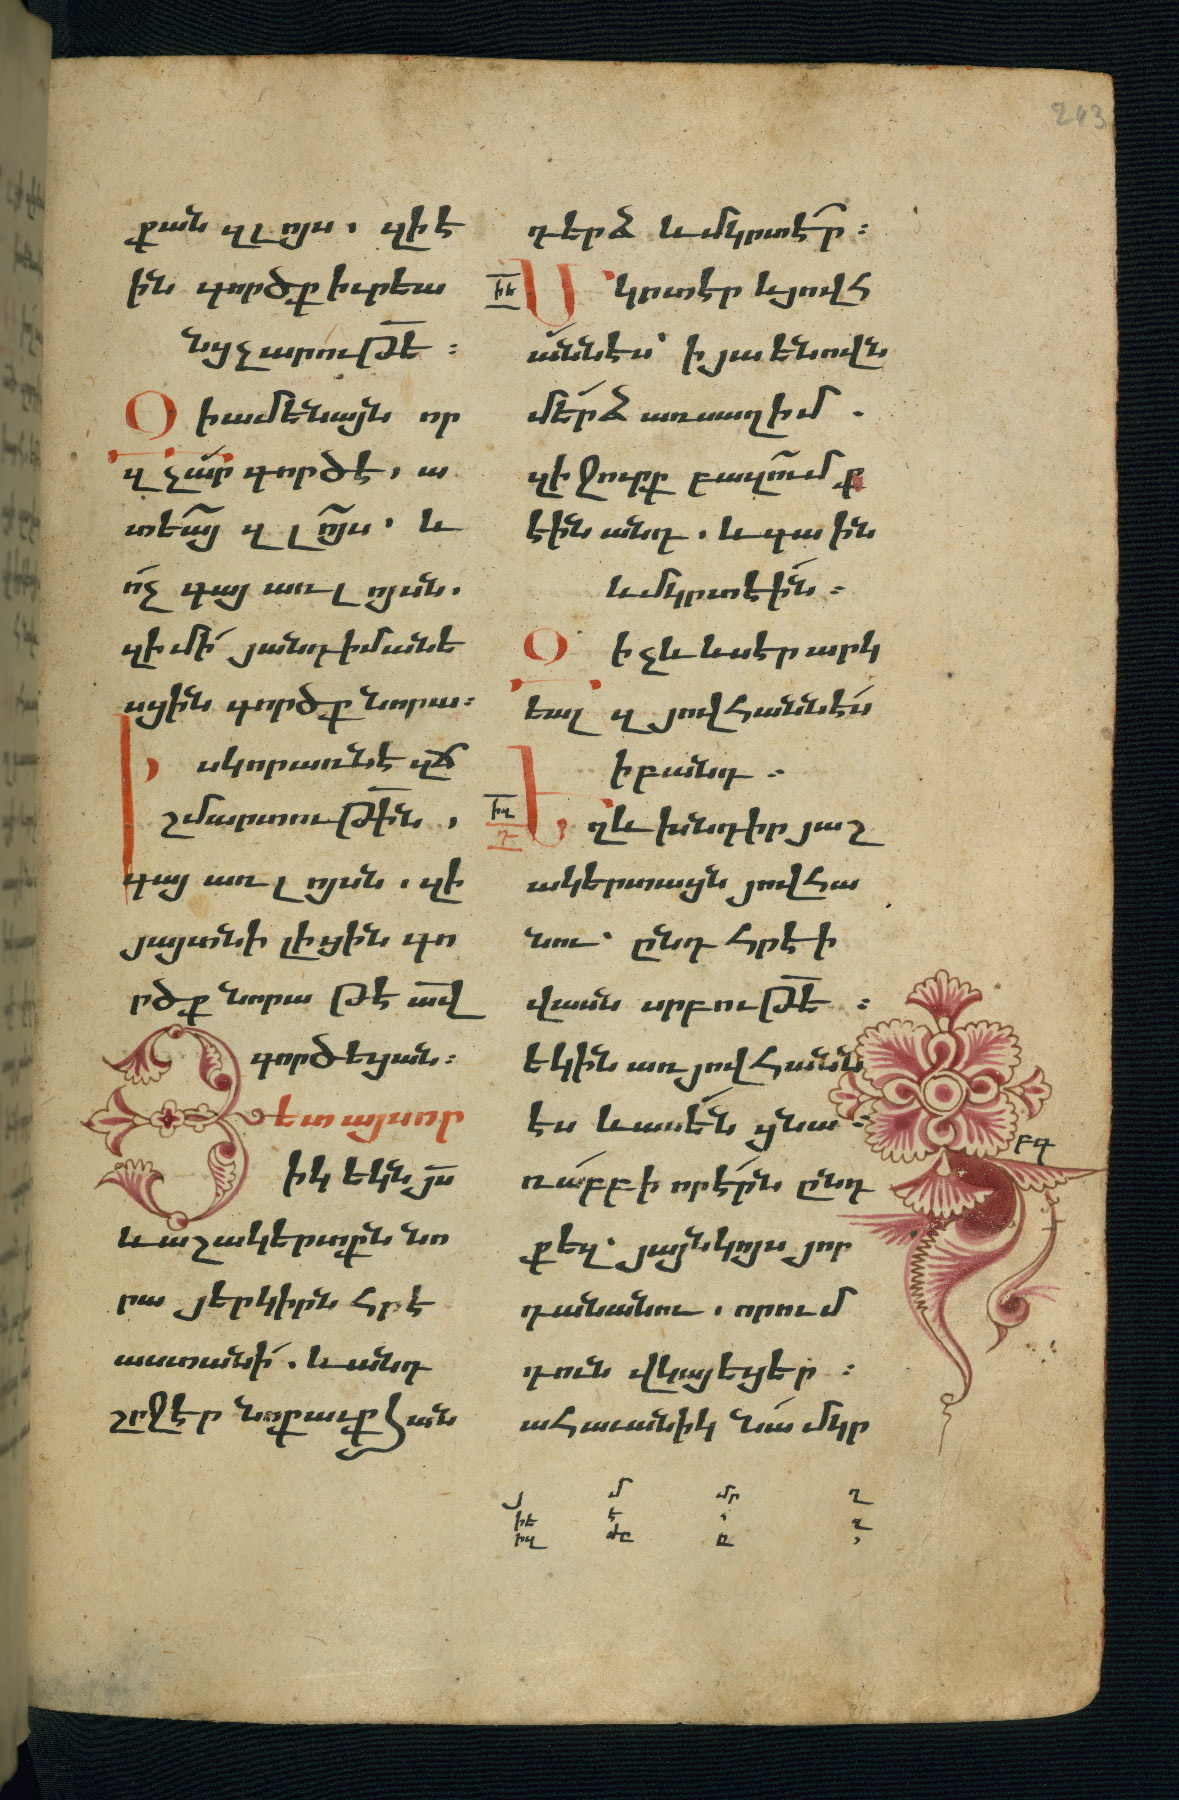 243
քան զլոյս. զի է
ին գործք իւրեա
նց չարութե :
Օ ի ամենայն որ
զչար գործէ, ա
տեայ զլոյս. և
ոչ գայ առ լոյսն.
զի մի յանդիմանե
սցին գործք նորա:
Իսկ որ առնէ զճ
շմարտութին,
գայ առ լոյսն. զի
յայտնի լիցին գո
րծք նորա թէ ած
գործեցան:
Յետ այսոր
իկ եկն յս
և աշակերտքն նո
րա յերկիրն հրէ
աստանի. և անդ
շրջէր նոքաւք հան
դերձ և մկրտէր :
իե
Մկրտէր և յովհ
աննէս՝ ի յաենովն
մերձ առ սաղիմ .
զի ջուրք բազումք
էին անդ. և գաին
և մկրտէին :
Օ ի չև ևս էր արկ
եալ զյովհաննէս
ի բանդ .
իզ
դ
Եղև խնդիր յաշ
ակերտացն յովհա
նու՝ ընդ հրէի
վասն սրբութե :
եկին առ յովհանն
էս և ասեն ցնա
ռաբբի որ էրն ընդ
բգ
քեզ՝ յայնկոյս յոր
դանանու. որում
դուն վկայեցեր :
ահաւանիկ նա մկր
յ մ մր ղ
իե է
իզ թ ը